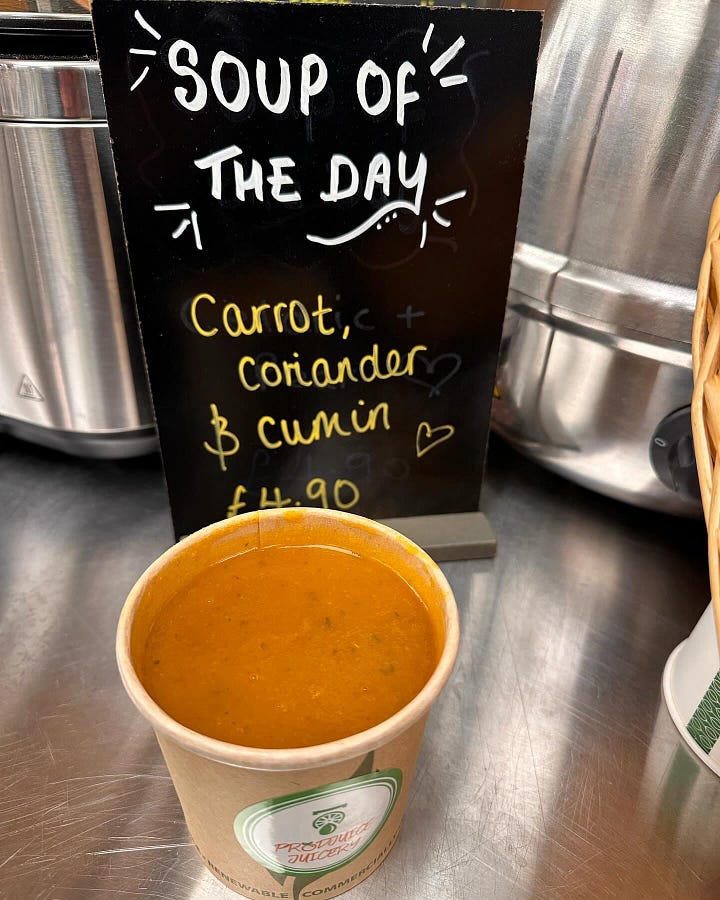 SOUP OF
THE DAY
Carrot,
coriander
& cumin
£4.90
PRODJUICE
JUICERY
RENEWABLE COMMERCIALLY